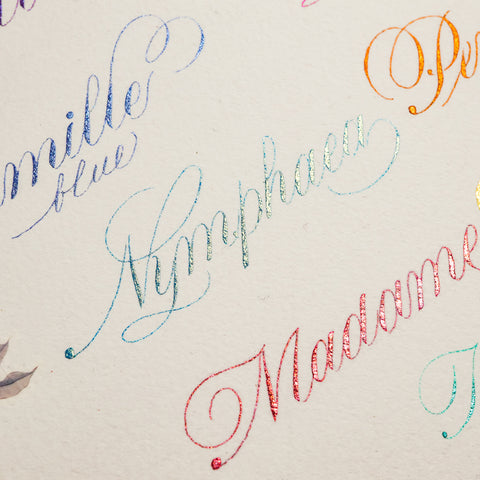 mille
blue
Nymphaea
Madame